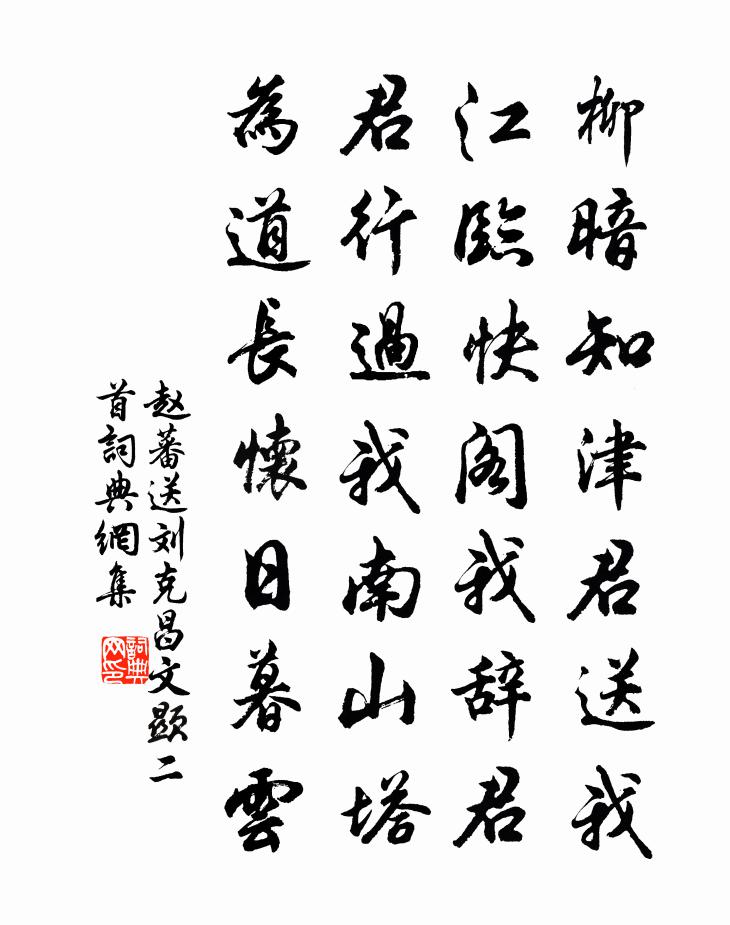 柳暗知津君送我
江臨快阁我辞君
君行過我南山塔
為道長懷日暮雲
赵蕃送刘克昌文顯二
首詞典網集
詞典
网印